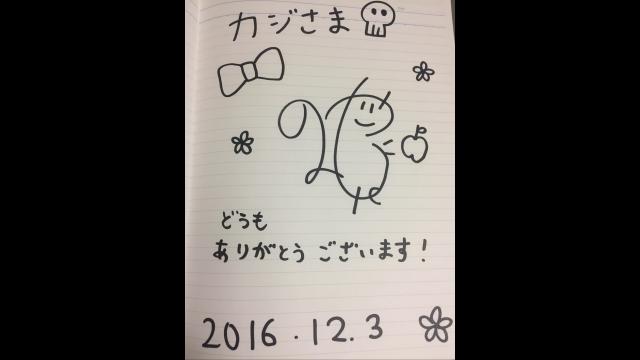 カジさま
どうも
ありがとうございます!
2016.12.3